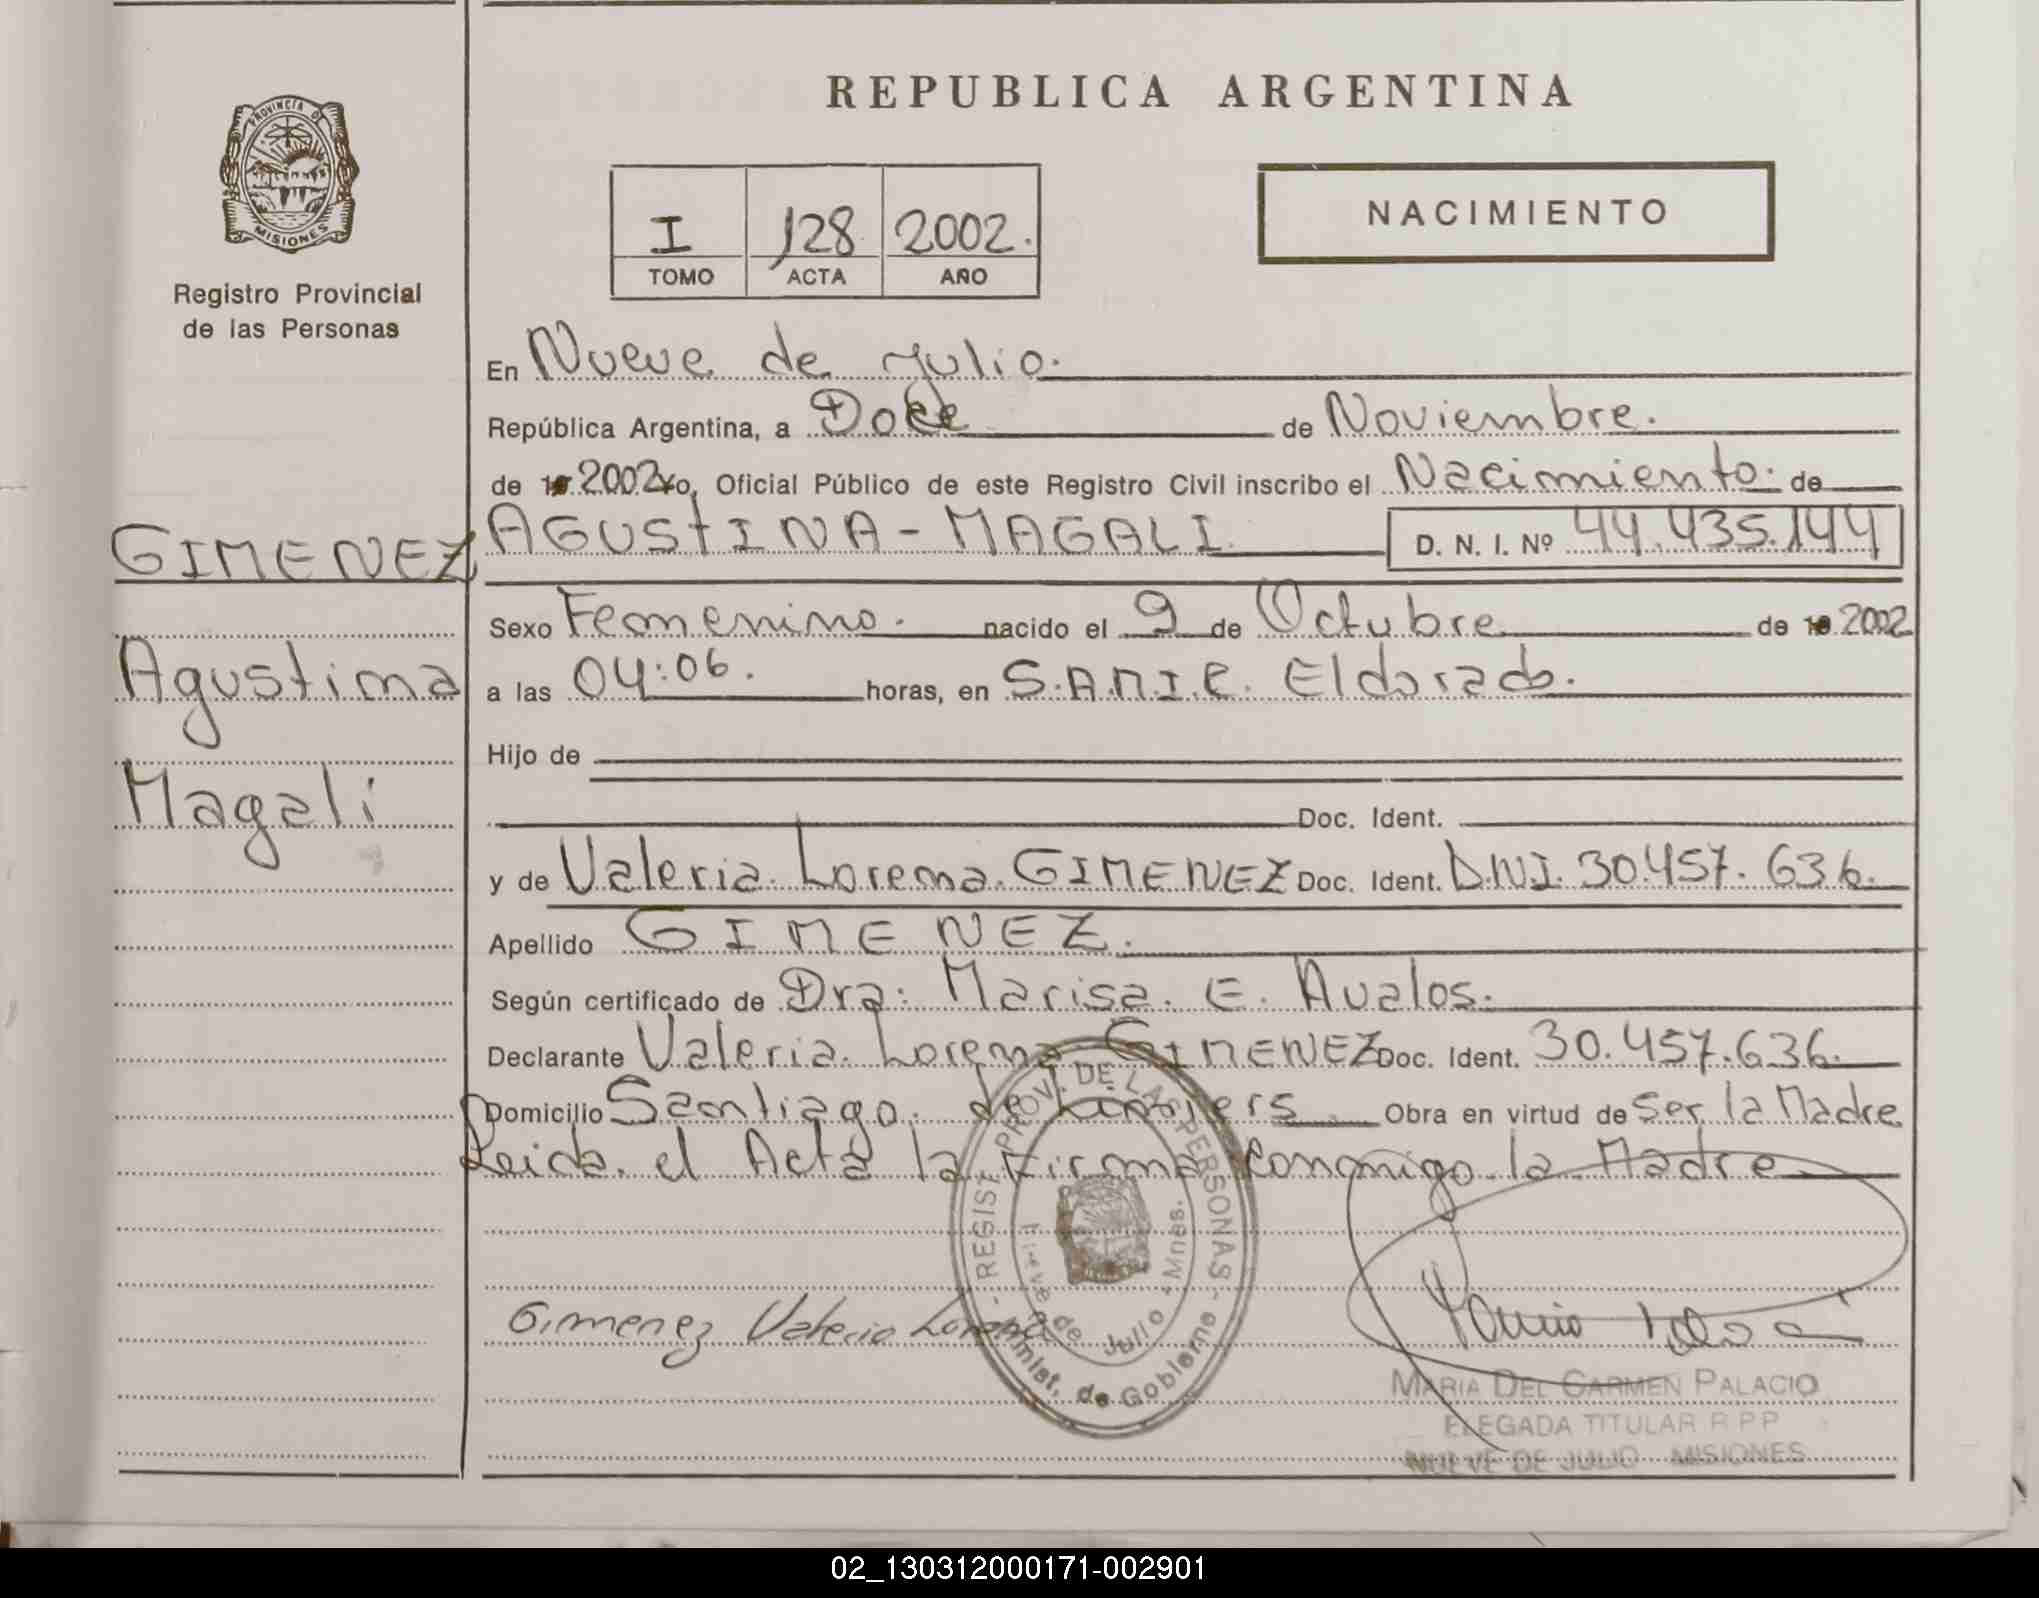 REPUBLICA ARGENTINA
PROVINCIA DE
MISIONES
Registro Provincial
de las Personas
I 128 2002.
TOMO ACTA AÑO
NACIMIENTO
En Nueve de Julio.
República Argentina, a Doce de Noviembre.
de 19 2002 Yo, Oficial Público de este Registro Civil inscribo el Nacimiento. de
GIMENEZ
Agustina
Magali
AGUSTINA - MAGALI D. N. I. Nº 44.435.144
Sexo Femenino. nacido el 9 de Octubre de 19 2002
a las 04:06. horas, en S.A.M.I.C. Eldorado.
Hijo de
Doc. Ident.
y de Valeria. Lorena. GIMENEZ Doc. Ident. D.N.I. 30.457.636.
Apellido GIMENEZ.
Según certificado de Dra: Marisa. E. Avalos.
Declarante Valeria. Lorena GIMENEZ Doc. Ident. 30.457.636.
Domicilio Santiago. de Liniers Obra en virtud de Ser la Madre
Leida. el Acta la Firma Conmigo la Madre
- REGIST. PROV. DE LAS PERSONAS -
Nueve de Julio - Mnes.
Minist. de Gobierno
Gimenez Valeria Lorena
MARIA DEL CARMEN PALACIO
DELEGADA TITULAR R P P
NUEVE DE JULIO - MISIONES
02_130312000171-002901